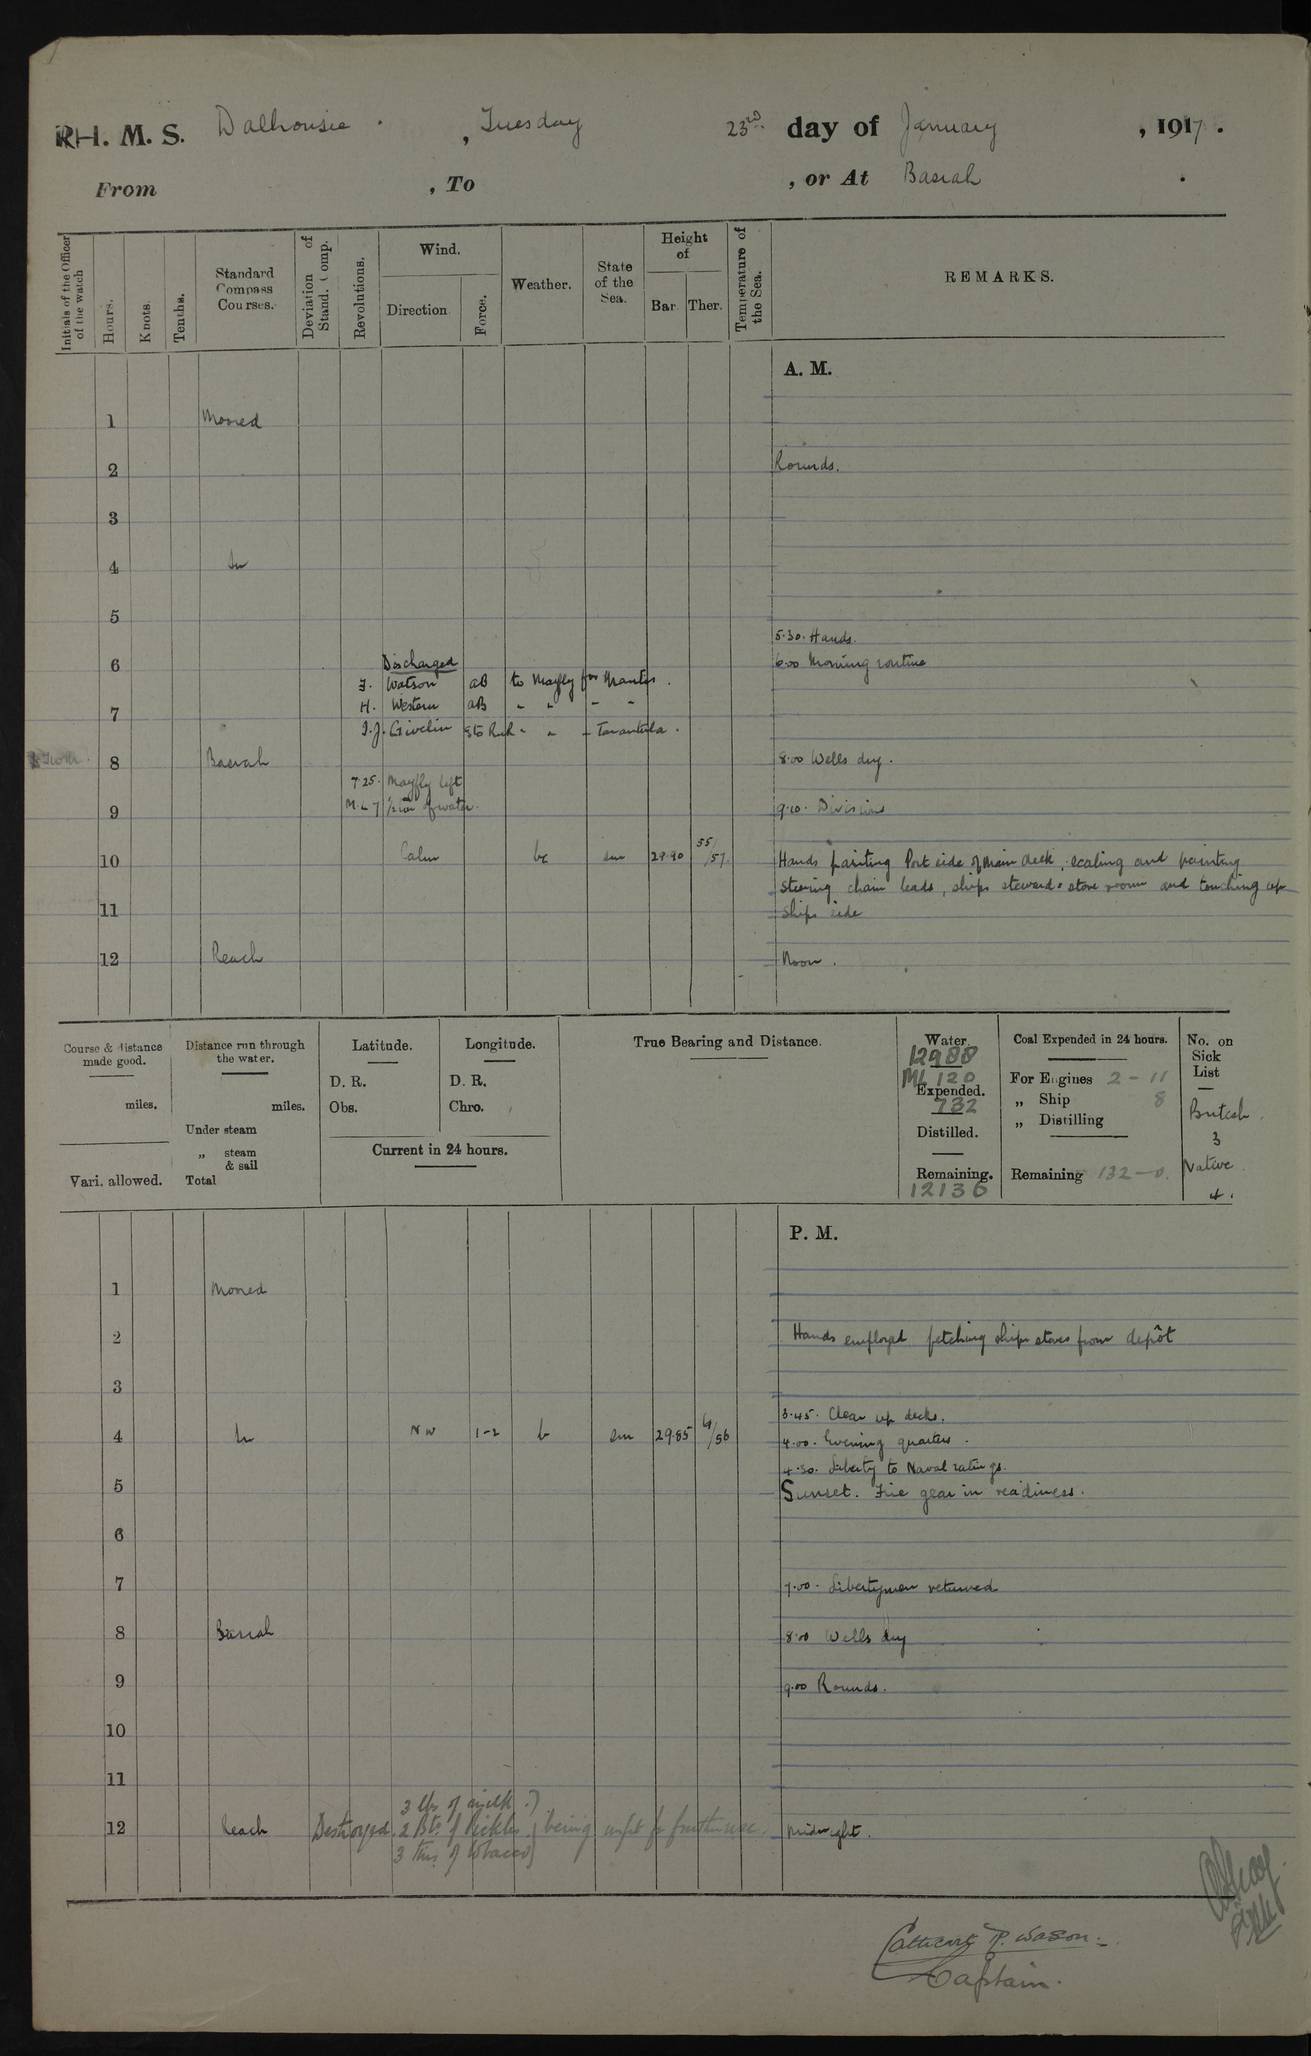 R.H. M. S. Dalhousie . , Tuesday 23rd day of January , 1917 .
From , To , or At Basrah .
Initials of the Officer of the watch
Hours.
Knots
Tenths.
Standard Compass Courses.
Deviation of Stand. Comp.
Revolutions.
Wind.
Direction
Force.
Weather.
State of the Sea.
Height of
Bar. Ther.
Temperature of the Sea.
REMARKS.
A. M.
1 Moored
2 Rounds.
3
4 in
5
5.30. Hands.
6 Discharged 6.00 Morning routine
J. Watson AB to Mayfly for Mantis .
H. Western AB " " " "
7
J.J. Givelin Sto " " - Tarantula .
8 Basrah 8.00 Wells dry .
7.25. Mayfly left
M.L 7 of water.
9 9.10. Divisions
10 Calm bc sm 29.90 55/57 Hands painting Port side of main deck, scaling and painting
steering chain leads, ships stewards store room and touching up
11 ships side
12 Reach Noon .
Course & distance made good.
miles.
Vari. allowed.
Distance run through the water.
miles.
Under steam
„ steam & sail
Total
Latitude.
D. R.
Obs.
Longitude.
D. R.
Chro.
Current in 24 hours.
True Bearing and Distance.
Water.
12988
ML 120
Expended.
732
Distilled.
Remaining.
12136
Coal Expended in 24 hours.
For Engines 2 - 11
„ Ship 8
„ Distilling
Remaining 132 - 0.
No. on Sick List
British
3
Native
4.
P. M.
1 Moored
2 Hands employed fetching ships stores from depôt
3
3.45. Clear up decks.
4 in NW 1-2 b sm 29.85 61/56 4.00. Evening quarters .
4.30. Liberty to Naval ratings.
5 Sunset. Fire gear in readiness.
6
7 7.00. Libertymen returned
8 Basrah 8.00 Wells dry
9 9.00 Rounds.
10
11
3 lbs of milk
12 Reach Destroyed. 2 Bts. of Pickles being unfit for further use. Midnight.
3 tins of tobacco
Cathcart R. Wason.
Captain.